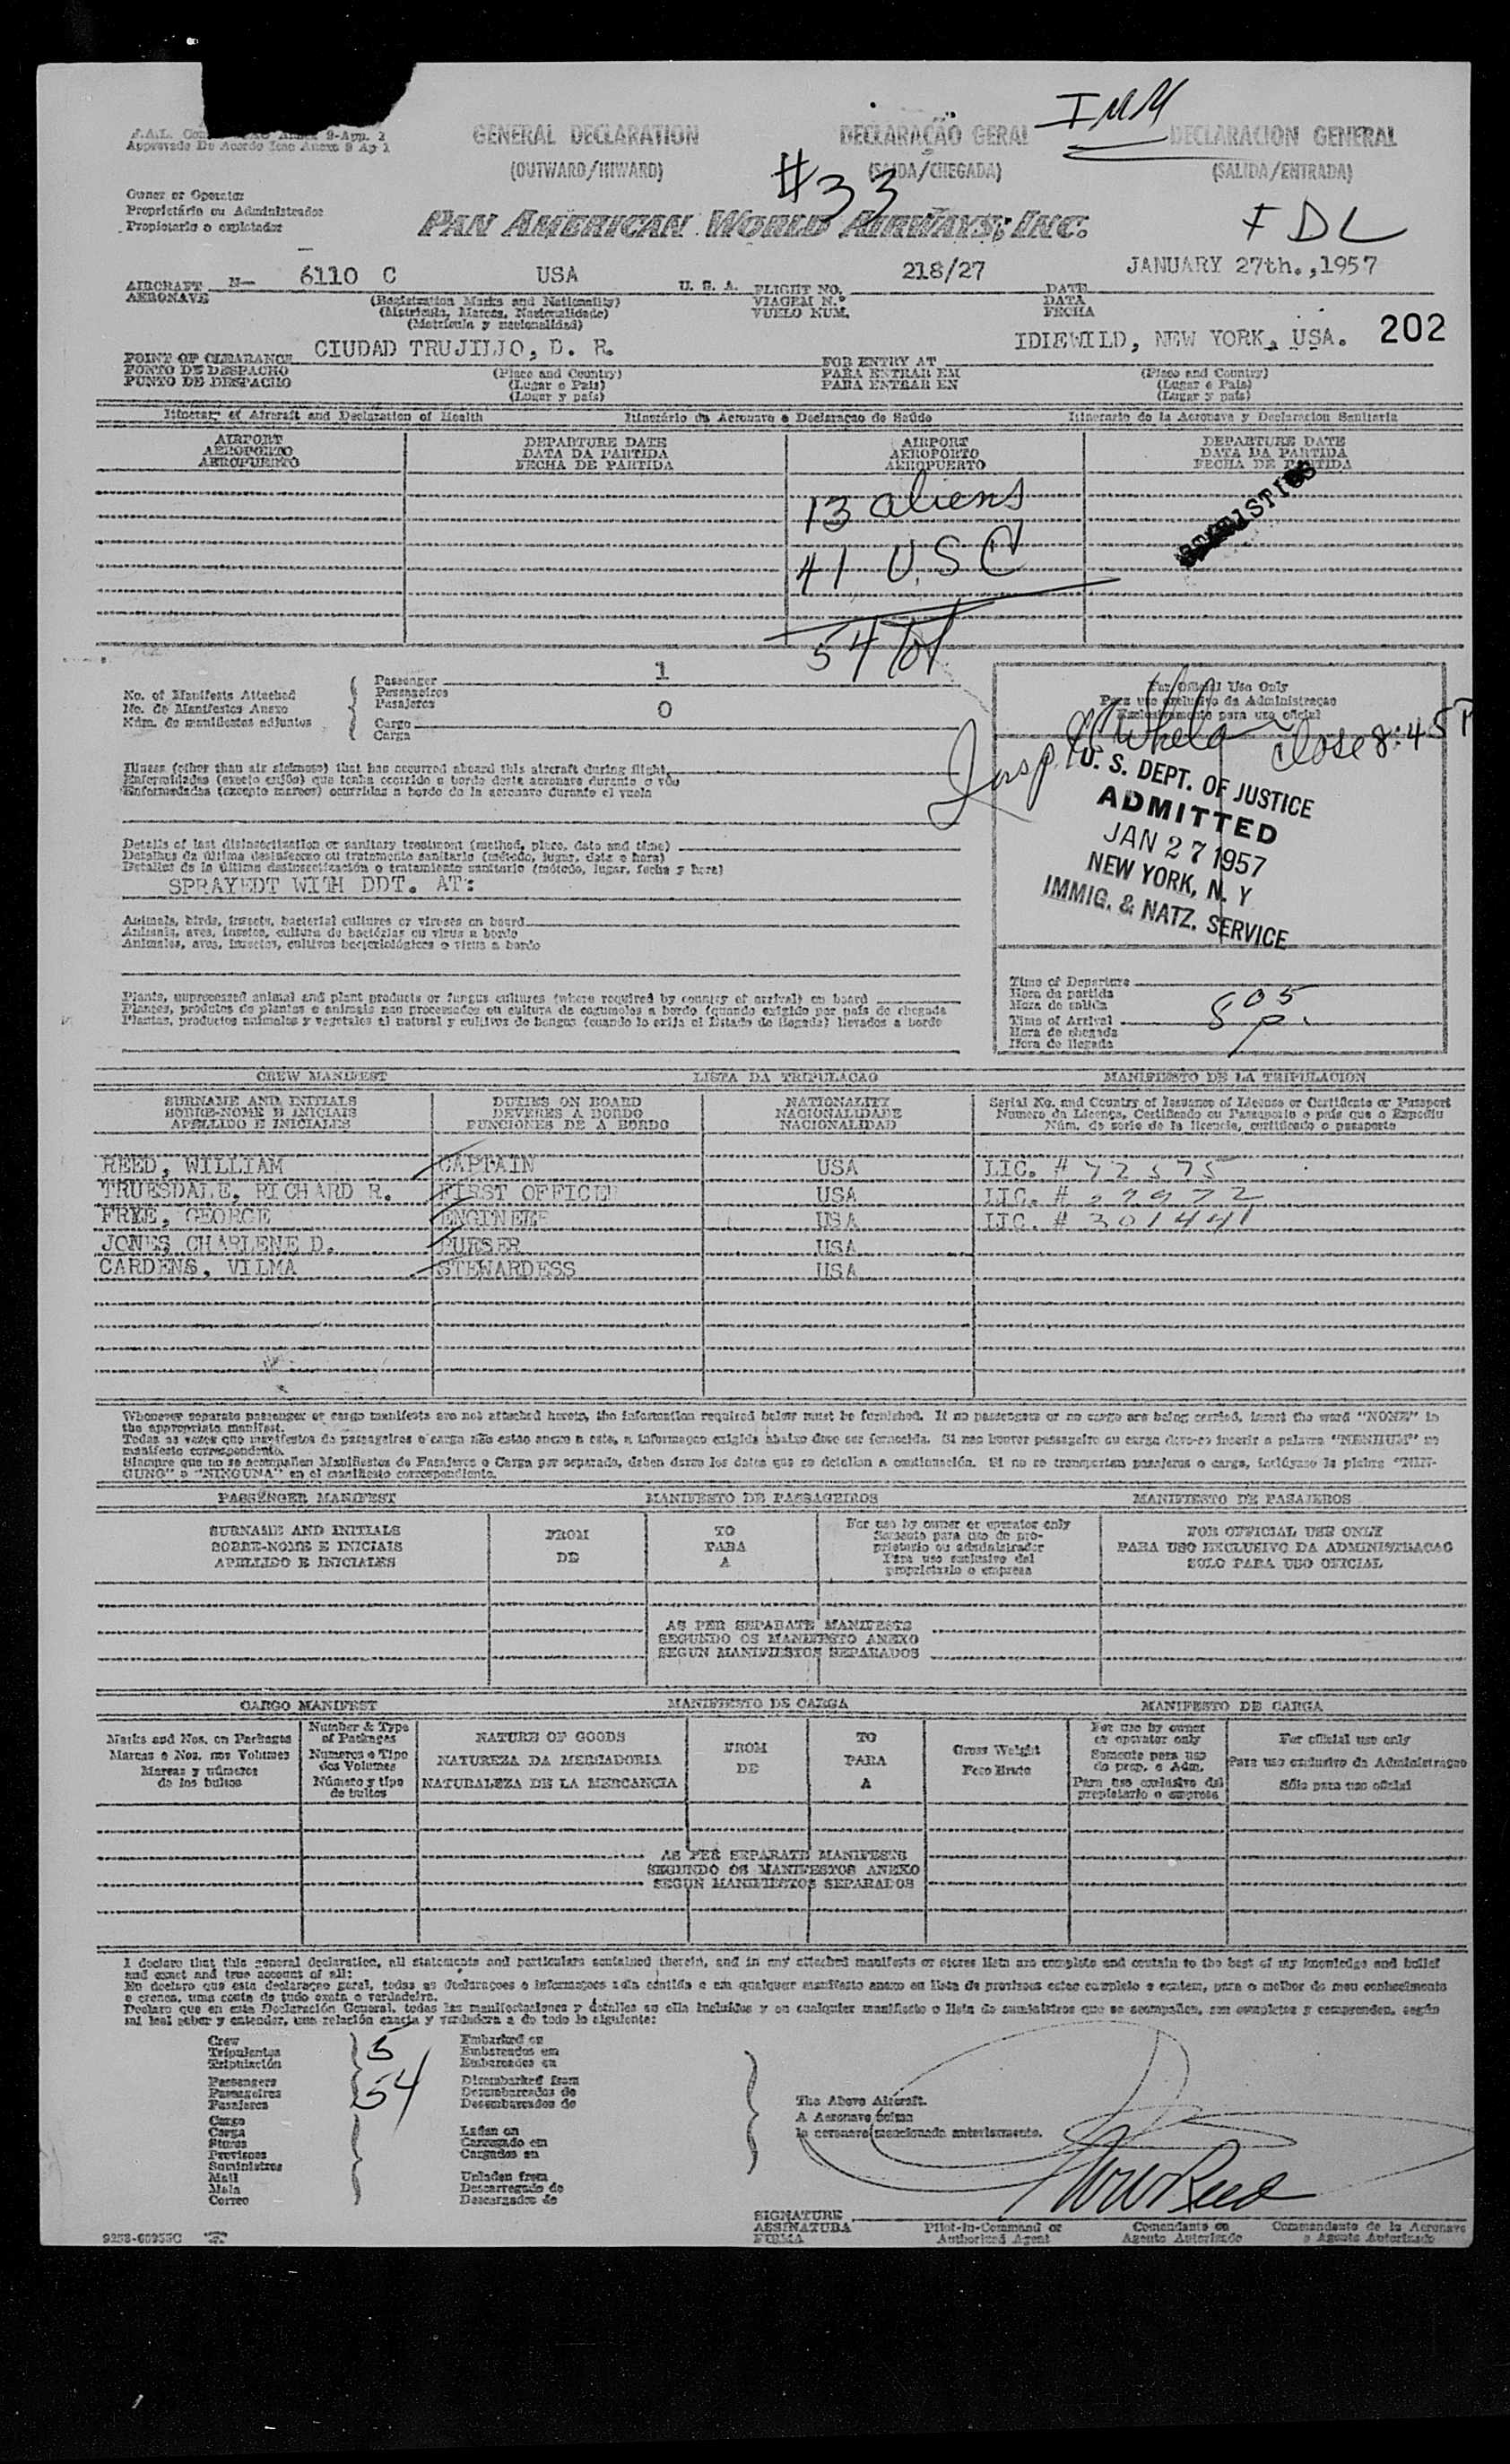 GENERAL DECLARATION
DECLARAÇÃO GERAL
IMM
DECLARACION GENERAL
(OUTWARD/INWARD)
(SAIDA/CHEGADA)
(SALIDA/ENTRADA)
#33
Owner or Operator
Proprietário ou Administrador
Propietario o explotador
PAN AMERICAN WORLD AIRWAYS, INC.
IDL
AIRCRAFT N- 6110 C USA U. S. A. FLIGHT NO. 218/27 DATE JANUARY 27th.,1957
AERONAVE (Registration Marks and Nationality) VIAGEM N.º DATA
(Matricula, Marcas, Nacionalidade) VUELO NUM. FECHA
(Matricula y nacionalidad)
POINT OF CLEARANCE CIUDAD TRUJILLO, D. R. FOR ENTRY AT IDLEWILD, NEW YORK, USA. 202
PONTO DE DESPACHO (Place and Country) PARA ENTRAR EM (Place and Country)
PUNTO DE DESPACHO (Lugar e Pais) PARA ENTRAR EN (Lugar e Pais)
(Lugar y pais) (Lugar y pais)
Itinerary of Aircraft and Declaration of Health Itinerário da Aeronave e Declaraçao de Saúde Itinerario de la Aeronave y Declaracion Sanitaria
AIRPORT DEPARTURE DATE AIRPORT DEPARTURE DATE
AEROPORTO DATA DA PARTIDA AEROPORTO DATA DA PARTIDA
AEROPUERTO FECHA DE PARTIDA AEROPUERTO FECHA DE PARTIDA
13 aliens
41 USC
54 tot
No. of Manifests Attached
No. de Manifestos Anexo
Núm. de manifiestos adjuntos
Passenger 1
Passageiros
Pasajeros
Cargo 0
Carga
For Official Use Only
Para uso exclusivo da Administraçao
Exclusivamente para uso oficial
Insp
close 8:45P
U. S. DEPT. OF JUSTICE
ADMITTED
JAN 27 1957
NEW YORK, N. Y
IMMIG. & NATZ. SERVICE
Illness (other than air sickness) that has occurred aboard this aircraft during flight
Enfermidades (exceto enjôo) que tenha ocorrido a bordo desta aeronave durante o vôo
Enfermedades (excepto mareos) ocurridas a bordo de la aeronave durante el vuelo
Details of last disinsectisation or sanitary treatment (method, place, date and time)
Detalhes da última desinfeccao ou tratamento sanitario (método, lugar, data e hora)
Detalles de la última desinsectización o tratamiento sanitario (método, lugar, fecha y hora)
SPRAYEDT WITH DDT. AT:
Animals, birds, insects, bacterial cultures or viruses on board
Animais, aves, insetos, cultura de bactérias ou virus a bordo
Animales, aves, insectos, cultivos bacteriológicos o virus a bordo
Plants, unprocessed animal and plant products or fungus cultures (where required by country of arrival) on board
Plantas, produtos de plantas e animais nao processados ou cultura de cogumelos a bordo (quando exigido por pais de chegada
Plantas, productos animales y vegetales al natural y cultivos de hongos (cuando lo exija el Estado de llegada) llevados a bordo
Time of Departure
Hora da partida
Hora de salida
Time of Arrival 805 p.
Hora de chegada
Hora de llegada
CREW MANIFEST LISTA DA TRIPULACAO MANIFIESTO DE LA TRIPULACION
SURNAME AND INITIALS DUTIES ON BOARD NATIONALITY Serial No. and Country of Issuance of License or Certificate or Passport
SOBRE-NOME E INICIAIS DEVERES A BORDO NACIONALIDADE Numero da Licença, Certificado ou Passaporte e pais que o Expediu
APELLIDO E INICIALES FUNCIONES DE A BORDO NACIONALIDAD Núm. de serie de la licencia, certificado o pasaporte
REED, WILLIAM CAPTAIN USA LIC. # 72375
TRUESDALE, RICHARD R. FIRST OFFICER USA LIC. # 27922
FRYE, GEORGE ENGINEER USA LIC. # 301441
JONES CHARLENE D. PURSER USA
CARDENS, VILMA STEWARDESS USA
Whenever separate passenger or cargo manifests are not attached hereto, the information required below must be furnished. If no passengers or no cargo are being carried, insert the word "NONE" in
the appropriate manifest.
Todas as vezes que manifestos de passageiros e carga não estao anexo a este, a informaçao exigida abaixo deve ser fornecida. Si nao houver passageiro ou carga deve-se inserir a palavra "NENHUM" no
manifesto correspondente.
Siempre que no se acompañen Manifiestos de Pasajeros o Carga por separado, deben darse los datos que se detallan a continuación. Si no se transportan pasajeros o carga, inclúyase la plabra "NIN-
GUNO" o "NINGUNA" en el manifiesto correspondiente.
PASSENGER MANIFEST MANIFESTO DE PASSAGEIROS MANIFIESTO DE PASAJEROS
SURNAME AND INITIALS FROM TO For use by owner or operator only FOR OFFICIAL USE ONLY
SOBRE-NOME E INICIAIS DE PARA Somente para uso do pro- PARA USO EXCLUSIVO DA ADMINISTRACAO
APELLIDO E INICIALES A prietario ou administrador SOLO PARA USO OFICIAL
Para uso exclusivo del
proprietario o empresa
AS PER SEPARATE MANIFESTS
SEGUNDO OS MANIFESTO ANEXO
SEGUN MANIFIESTOS SEPARADOS
CARGO MANIFEST MANIFIESTO DE CARGA MANIFESTO DE CARGA
Marks and Nos. on Packages Number & Type of Packages NATURE OF GOODS FROM TO Gross Weight For use by owner or operator only For official use only
Marcas e Nos. nos Volumes Numeros e Tipo dos Volumes NATUREZA DA MERCADORIA DE PARA Peso Bruto Somente para uso do prop. e Adm. Para uso exclusivo da Administraçao
Marcas y números de los bultos Número y tipo de bultos NATURALEZA DE LA MERCANCIA A Para uso exclusivo del propietario o empresa Sólo para uso oficial
AS PER SEPARATE MANIFESTS
SEGUNDO OS MANIFESTOS ANEXO
SEGUN MANIFIESTOS SEPARADOS
I declare that this general declaration, all statements and particulars contained therein, and in any attached manifests or stores lists are complete and contain to the best of my knowledge and belief
and exact and true account of all:
Eu declaro que esta declaraçao geral, todas as declaraçoes e informaçoes nela contida e em qualquer manifesto anexo ou lista de provisoes estao completo e contem, para o melhor do meu conhecimento
e crenca, uma conta de tudo exata e verdadeira.
Declaro que en esta Declaración General, todas las manifestaciones y detalles en ella incluidos y en cualquier manifiesto o lista de suministros que se acompañen, son completos y comprenden, según
mi leal saber y entender, una relación exacta y verdadera a de todo lo siguiente:
Crew 5 Embarked on
Tripulantes Embarcados em
Tripulación Embarcados en
Passengers 54 Disembarked from
Passageiros Desembarcados de
Pasajeros Desembarcados de
The Above Aircraft.
A Aeronave acima
la aeronave mencionada anteriormente.
Cargo
Carga
Stores Laden on
Provisoes Carregado em
Suministros Cargados en
Mail Unladen from
Mala Descarregado de
Correo Descargados de
Wm Reed
SIGNATURE
ASSINATURA Pilot-in-Command or Comandante ou Commandante de la Aeronave
FIRMA Authorized Agent Agente Autorizado o Agente Autorizado